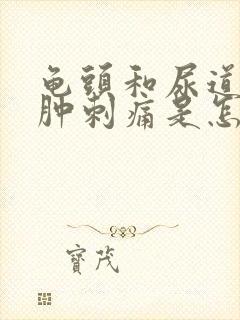 龟頭和尿道
肿刺痛是怎
寶茂